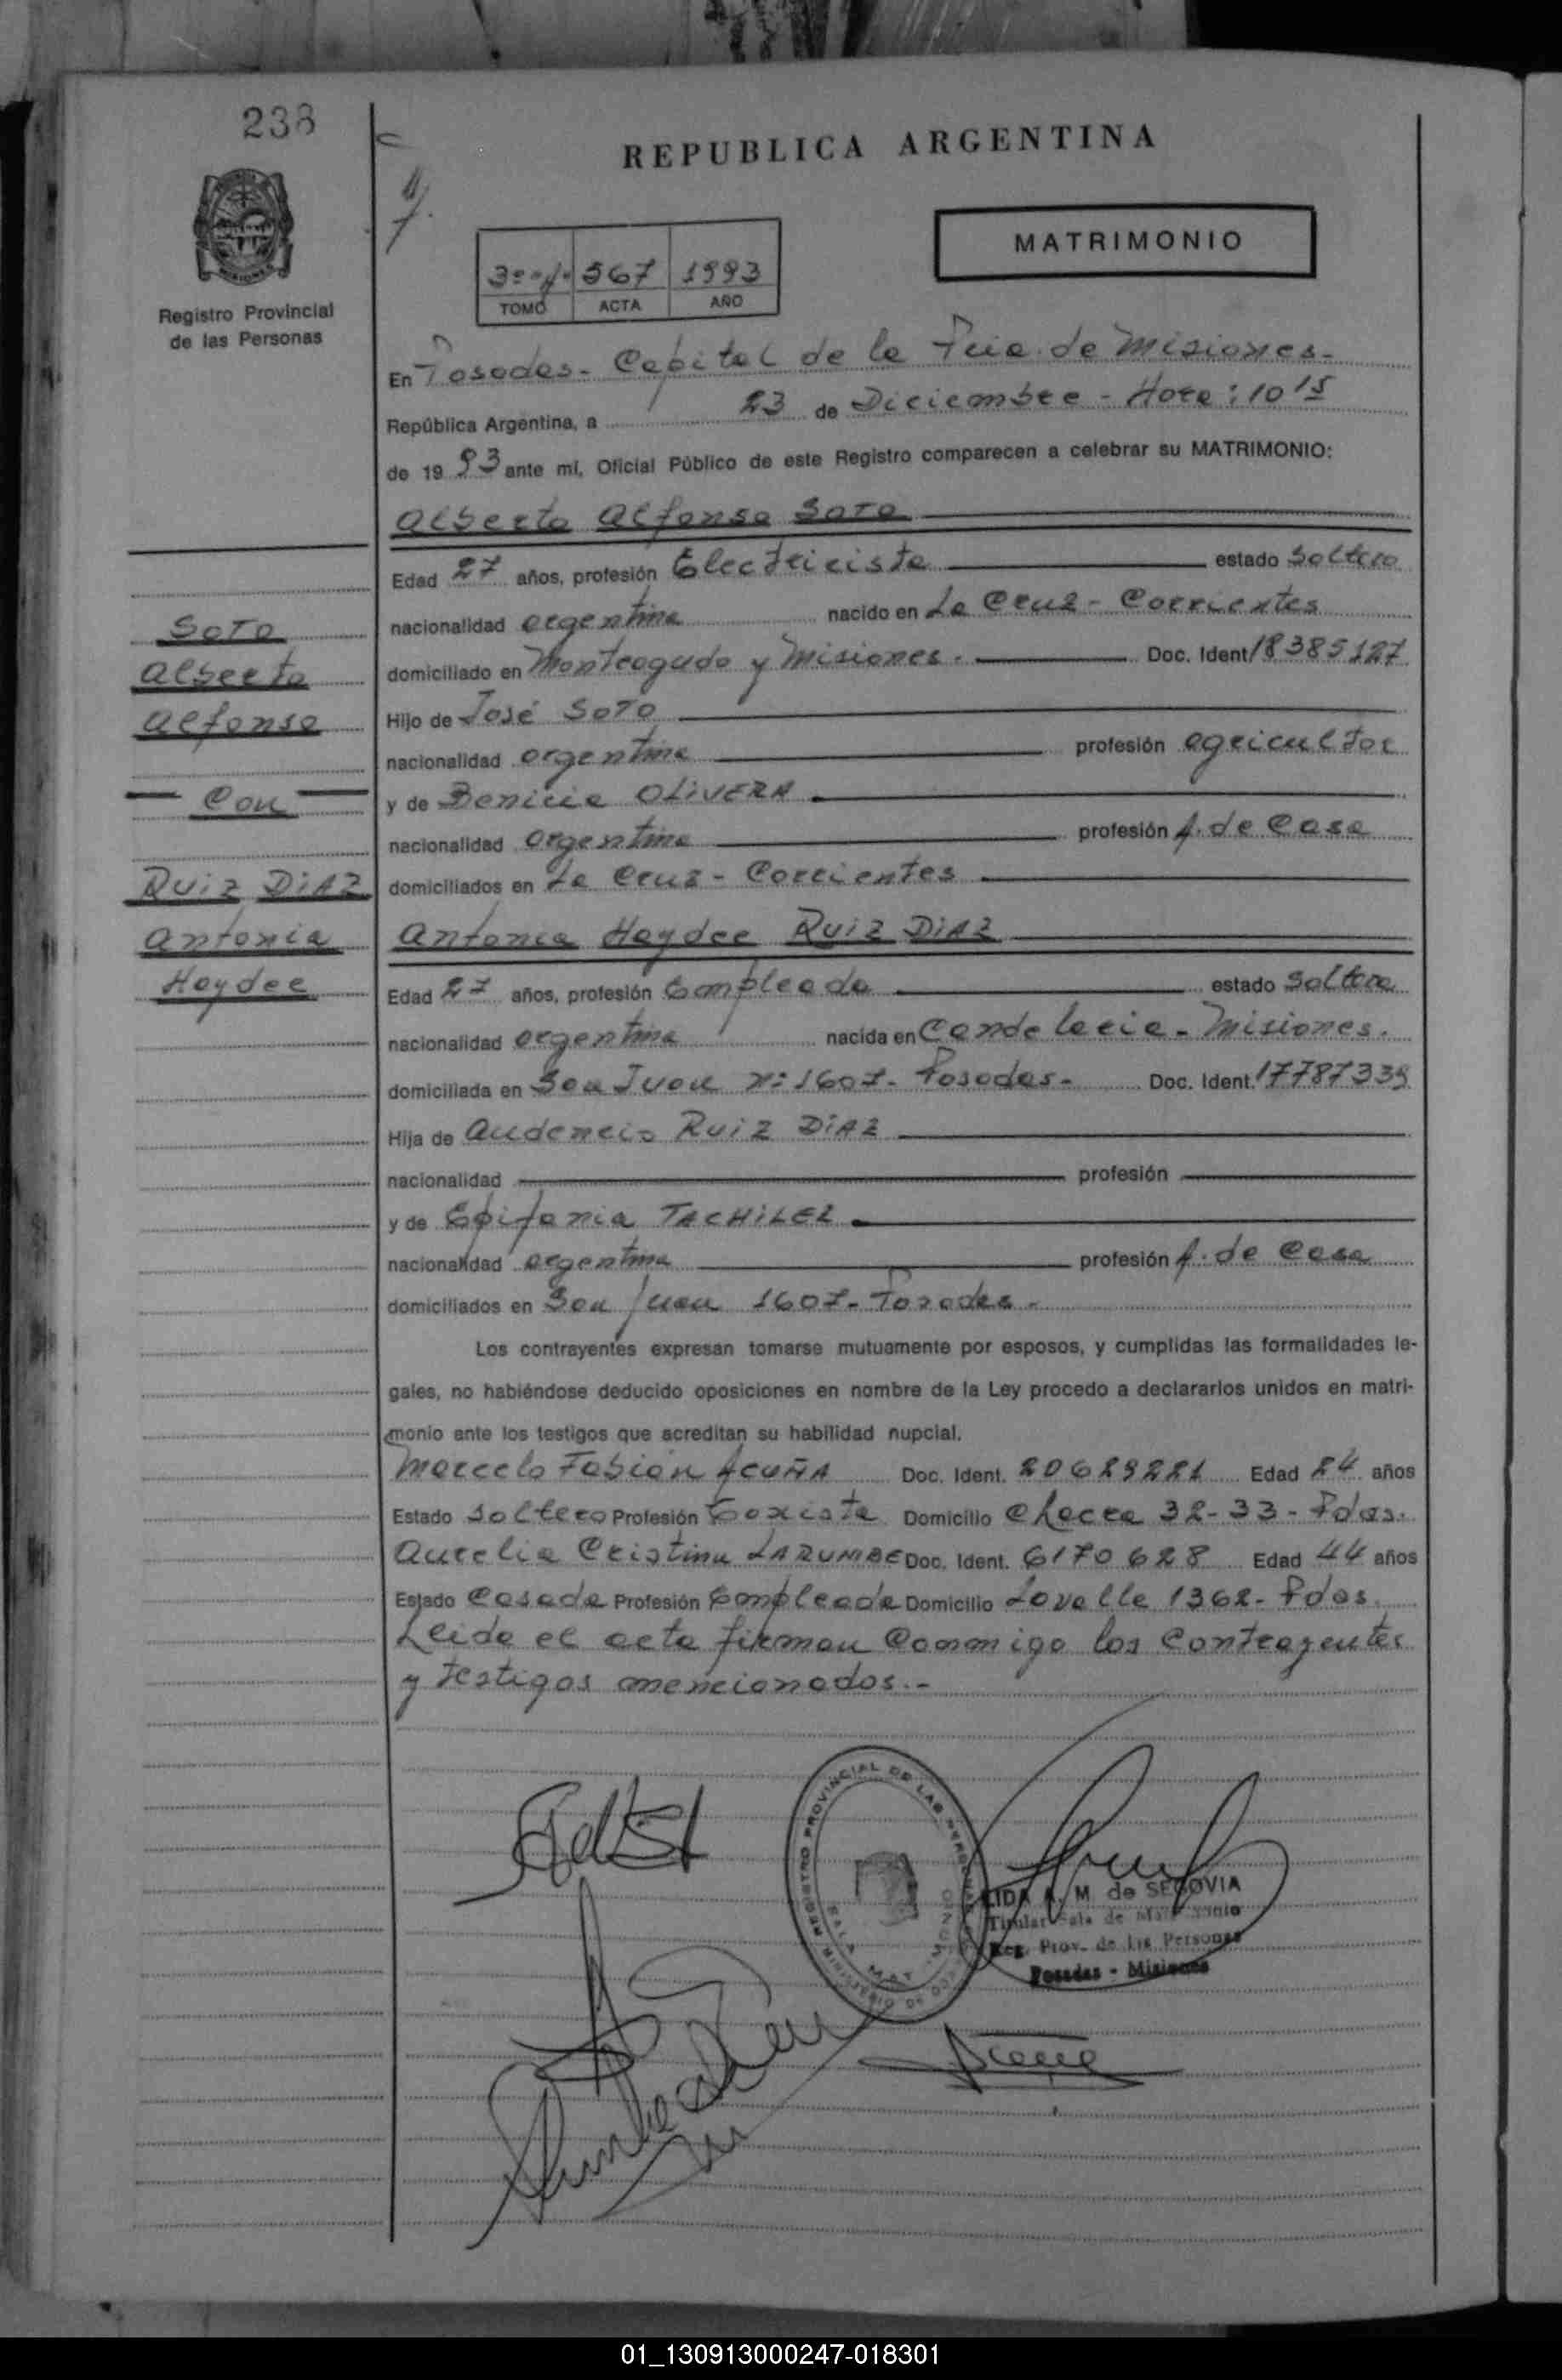 238
REPUBLICA ARGENTINA
MATRIMONIO
3º 567 1993
TOMO ACTA AÑO
Registro Provincial
de las Personas
En Posadas - Capital de la Pcia. de Misiones -
República Argentina, a 23 de Diciembre - Hora: 10 15
de 19 93 ante mí, Oficial Público de este Registro comparecen a celebrar su MATRIMONIO:
Alberto Alfonso SOTO
Edad 27 años, profesión Electricista estado Soltero
nacionalidad argentina nacido en La Cruz - Corrientes
domiciliado en Monteagudo y Misiones. Doc. Ident 18385127
Hijo de José SOTO
nacionalidad argentina profesión agricultor
y de Benicia OLIVERA
nacionalidad argentina profesión A. de Casa
domiciliados en La Cruz - Corrientes
Antonia Haydee RUIZ DIAZ
Edad 27 años, profesión Empleada estado Soltera
nacionalidad argentina nacida en Candelaria - Misiones.
domiciliada en San Juan nº 1607 - Posadas - Doc. Ident. 17787339
Hija de Audencio RUIZ DIAZ
nacionalidad profesión
y de Epifania TACHILEZ
nacionalidad argentina profesión A. de Casa
domiciliados en San Juan 1607 - Posadas -
Los contrayentes expresan tomarse mutuamente por esposos, y cumplidas las formalidades le-
gales, no habiéndose deducido oposiciones en nombre de la Ley procedo a declararlos unidos en matri-
monio ante los testigos que acreditan su habilidad nupcial.
Marcelo Fabián ACUÑA Doc. Ident. 20629221 Edad 24 años
Estado Soltero Profesión Domicilio Chacra 32-33 - Pdas.
Aurelia Cristina LARUMBE Doc. Ident. 6170628 Edad 44 años
Estado Casada Profesión Empleada Domicilio Lavalle 1362 - Pdas.
Leida el acta firman conmigo los contrayentes
y testigos mencionados.-
SOTO
Alberto
Alfonso
Con
RUIZ DIAZ
Antonia
Haydee
REGISTRO PROVINCIAL DE LAS PERSONAS
LIDA A. M. de SEGOVIA
Titular Sala de Matrimonio
Reg. Prov. de las Personas
Posadas - Misiones
01_130913000247-018301